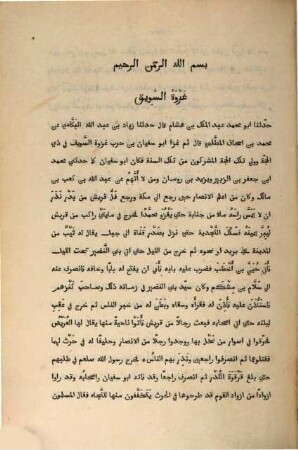 بسم الله الرحمن الرحيم
غزوة السويق
حدّثنا ابو محمد عبد الملك بن هشام قال حدثنا زياد بن عبد الله البكّائي عن
محمد بن اسحاق المطّلبي قال ثم غزا ابو سفيان بن حرب غزوة السَّويق في ذي
الحجة وولى تلك الحجة المشركون من تلك السنة فكان ابو سفيان كما حدثني محمد
ابن جعفر بن الزبير ويزيد بن رومان ومن لا أَتَّهم عن عبد الله بن كعب بن
مالك وكان من اعلم الانصار حين رجع الى مكة ورجع فَلُّ قريش من بَدْر نَذَرَ
ان لا يمسّ رأسَه ماءٌ من جنابة حتى يغزو محمدًا فخرج في مايتَيْ راكب من قريش
ليُبِرَّ يمينَه فسلك النَّجْديّة حتى نزل بصدر قناة الى جبل يقال له ثَيْبٌ من
المدينة على بريد او نحوه ثم خرج من الليل حتى اتى بني النَّضير تحت الليل
فأَتى حُيَيّ بن أَخْطَب فضرب عليه بابه فأَبى ان يفتح له بابَه وخافه فانصرف عنه
الى سَلَّام بن مِشْكَم وكان سيد بني النضير في زمانه ذلك وصاحب كَنْزهم
فاستأذن عليه فأَذِنَ له فقَراه وسقاه وبطن له من خبر الناس ثم خرج في عَقِب
ليلته حتى اتى اصحابه فبعث رجالًا من قريش فأَتوا ناحيةً منها يقال لها العُرَيْض
فحرّقوا في اصوار من نخل بها ووجدوا رجلًا من الانصار وحليفًا له في حرث لهما
فقتلوهما ثم انصرفوا راجعين ونَذِرَ بهم الناس فخرج رسول الله صلعم في طلبهم
حتى بلغ قَرْقَرةَ الكُدْر ثم انصرف راجعا وقد فاته ابو سفيان واصحابه وقد راوا
ازوادًا من ازواد القوم قد طرحوها في الحرث يتخفّفون منها للنَّجاء فقال المسلمون